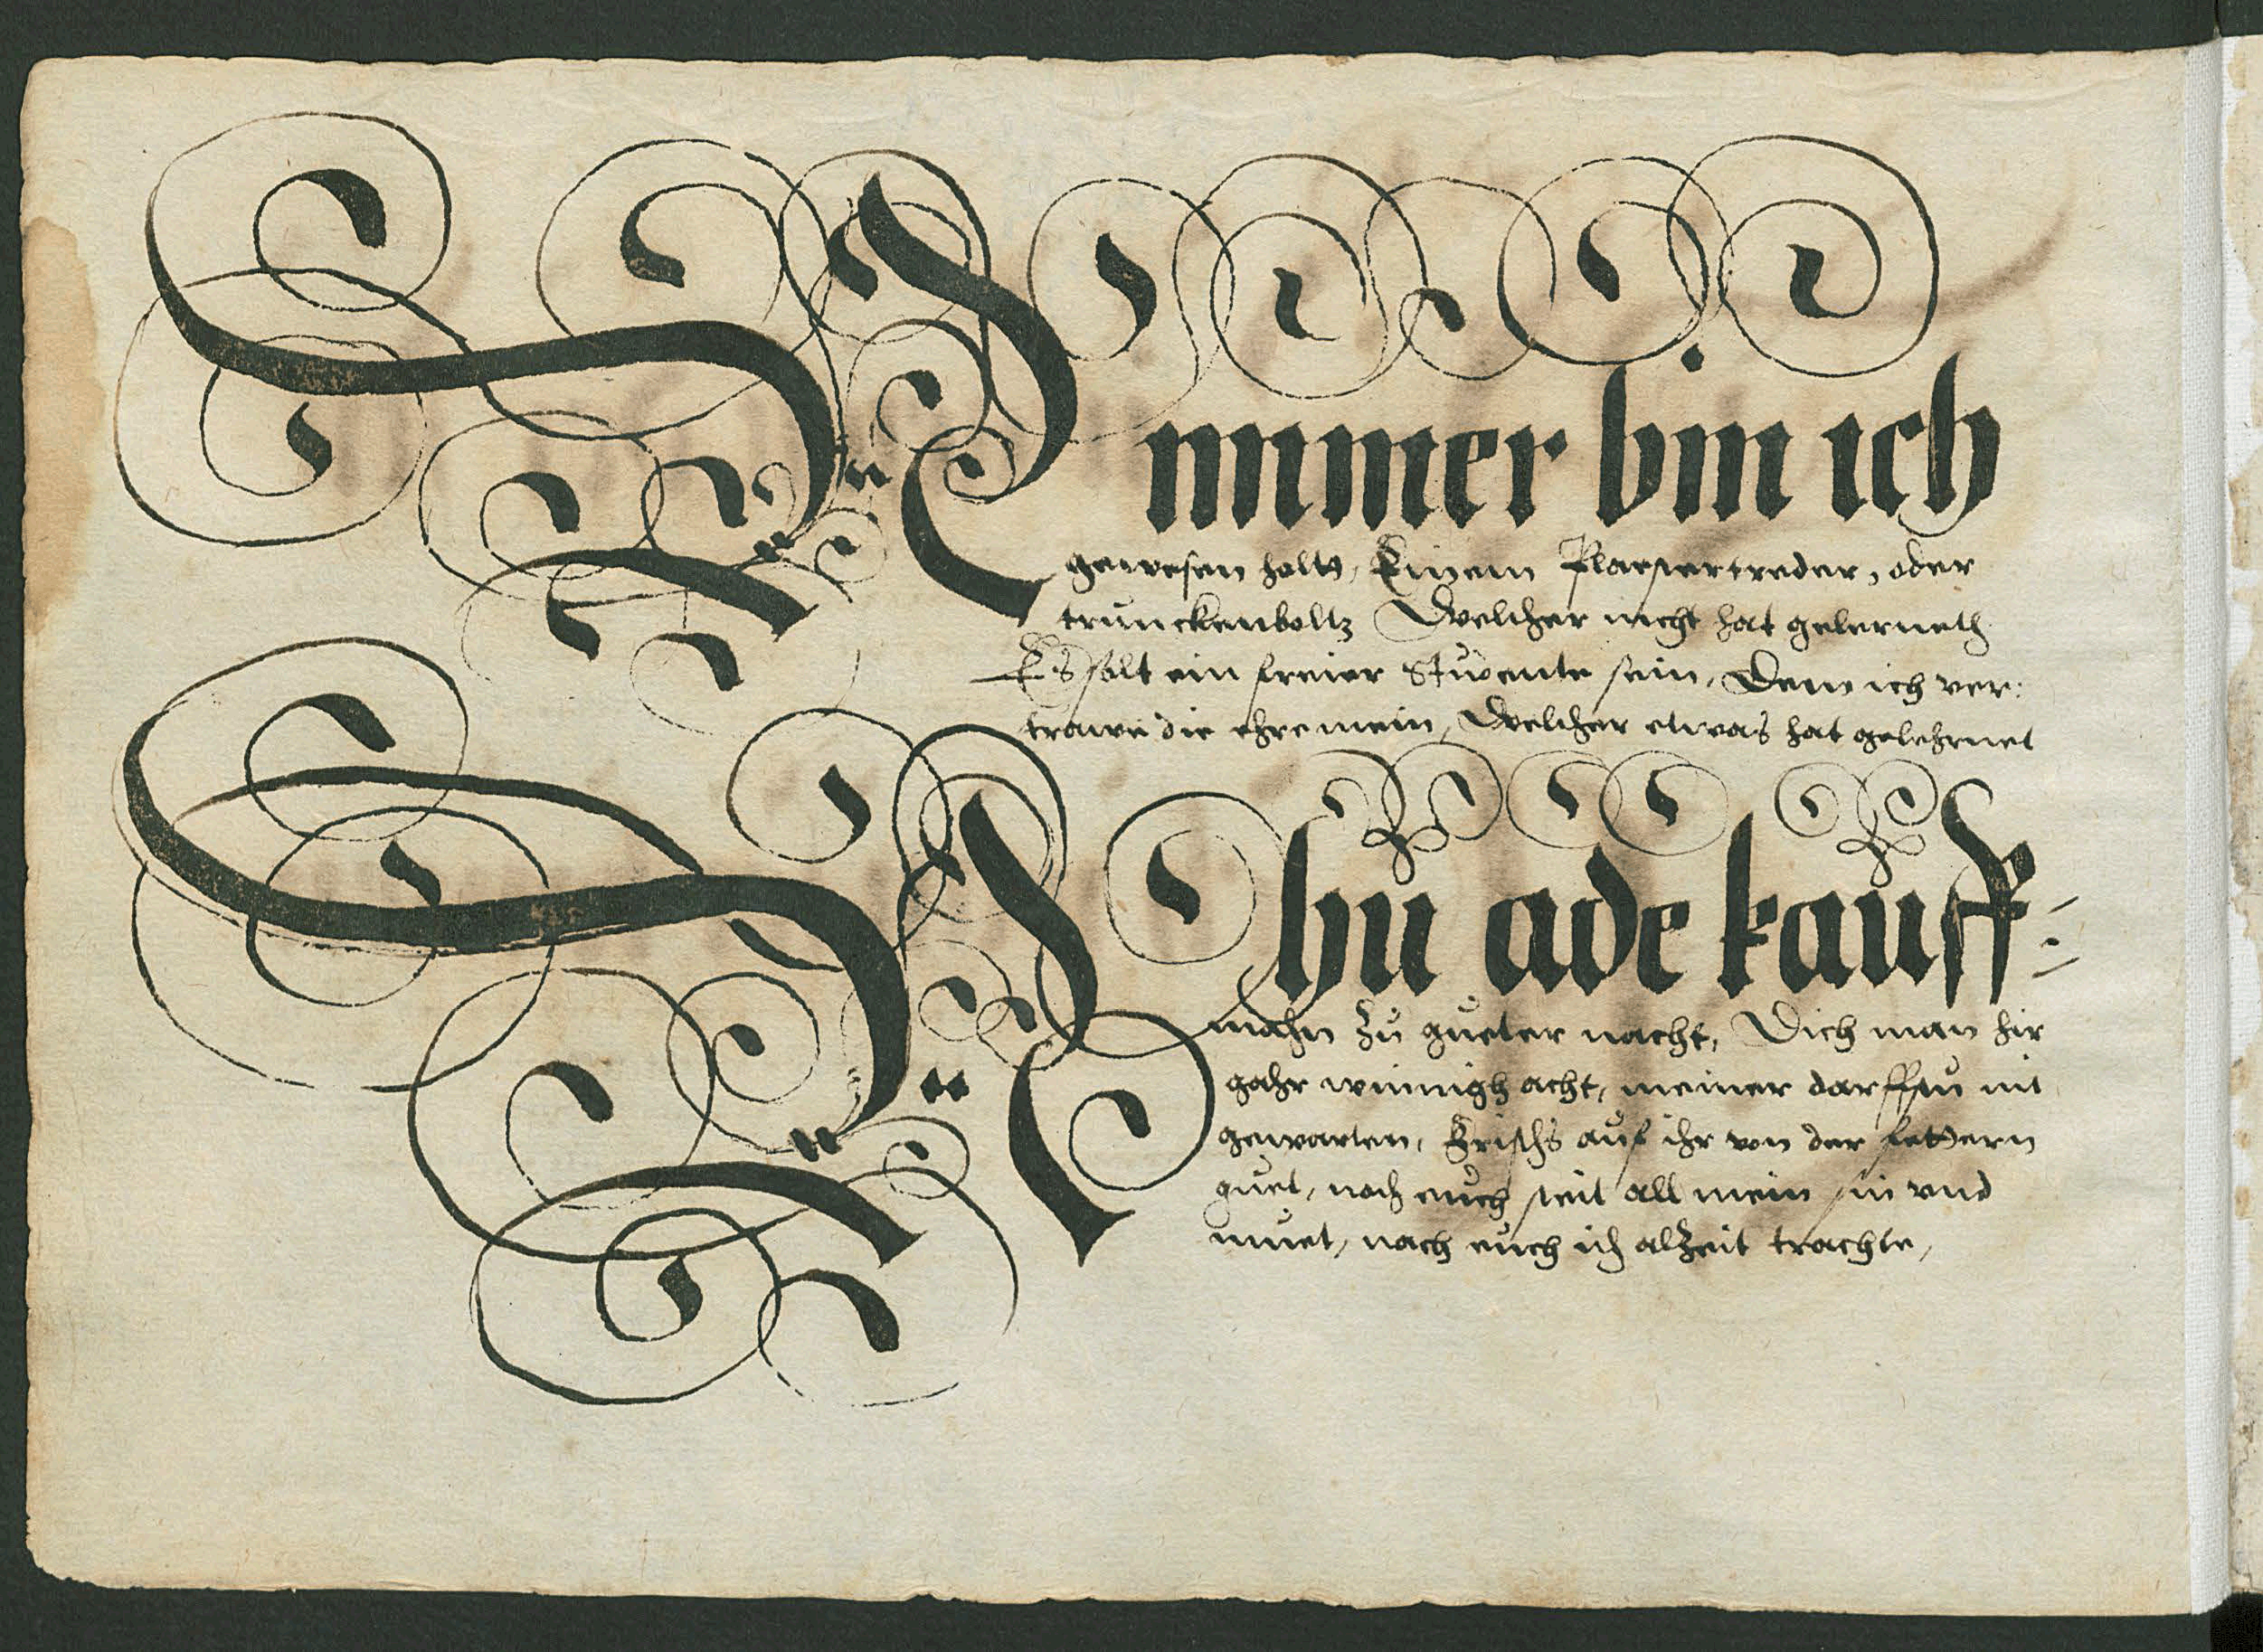 Nimmer bin ich
gewesen holtt, Einem Plaestertreder, oder
trunckenboltz Welcher nicht hat gelerneth
Es solt ein freier Studente sein, Dem ich ver:
trawe die ehre mein, Welcher etwas hat gelehrnet
Nhu ade kauff=
mahn zu gueter nacht, Dich man hir
gahr winnigh acht, meiner darffstu nit
gewarten, Frischs auf ihr von der feddern
guet, noch euch steit all mein sin vnd
muet, nach euch ich alzeit trachte,